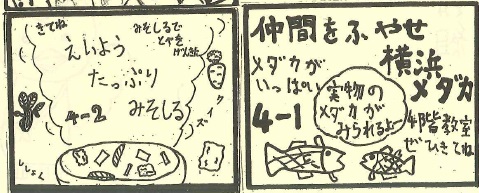 きてね
みそしるで
えいよう
たっぷり
みそしる
4-2
ししょく
仲間をふやせ
横浜
メダカ
メダカが
いっぱい
4-1
実物の
メダカが
みられるよー
4階教室
ぜひきてね